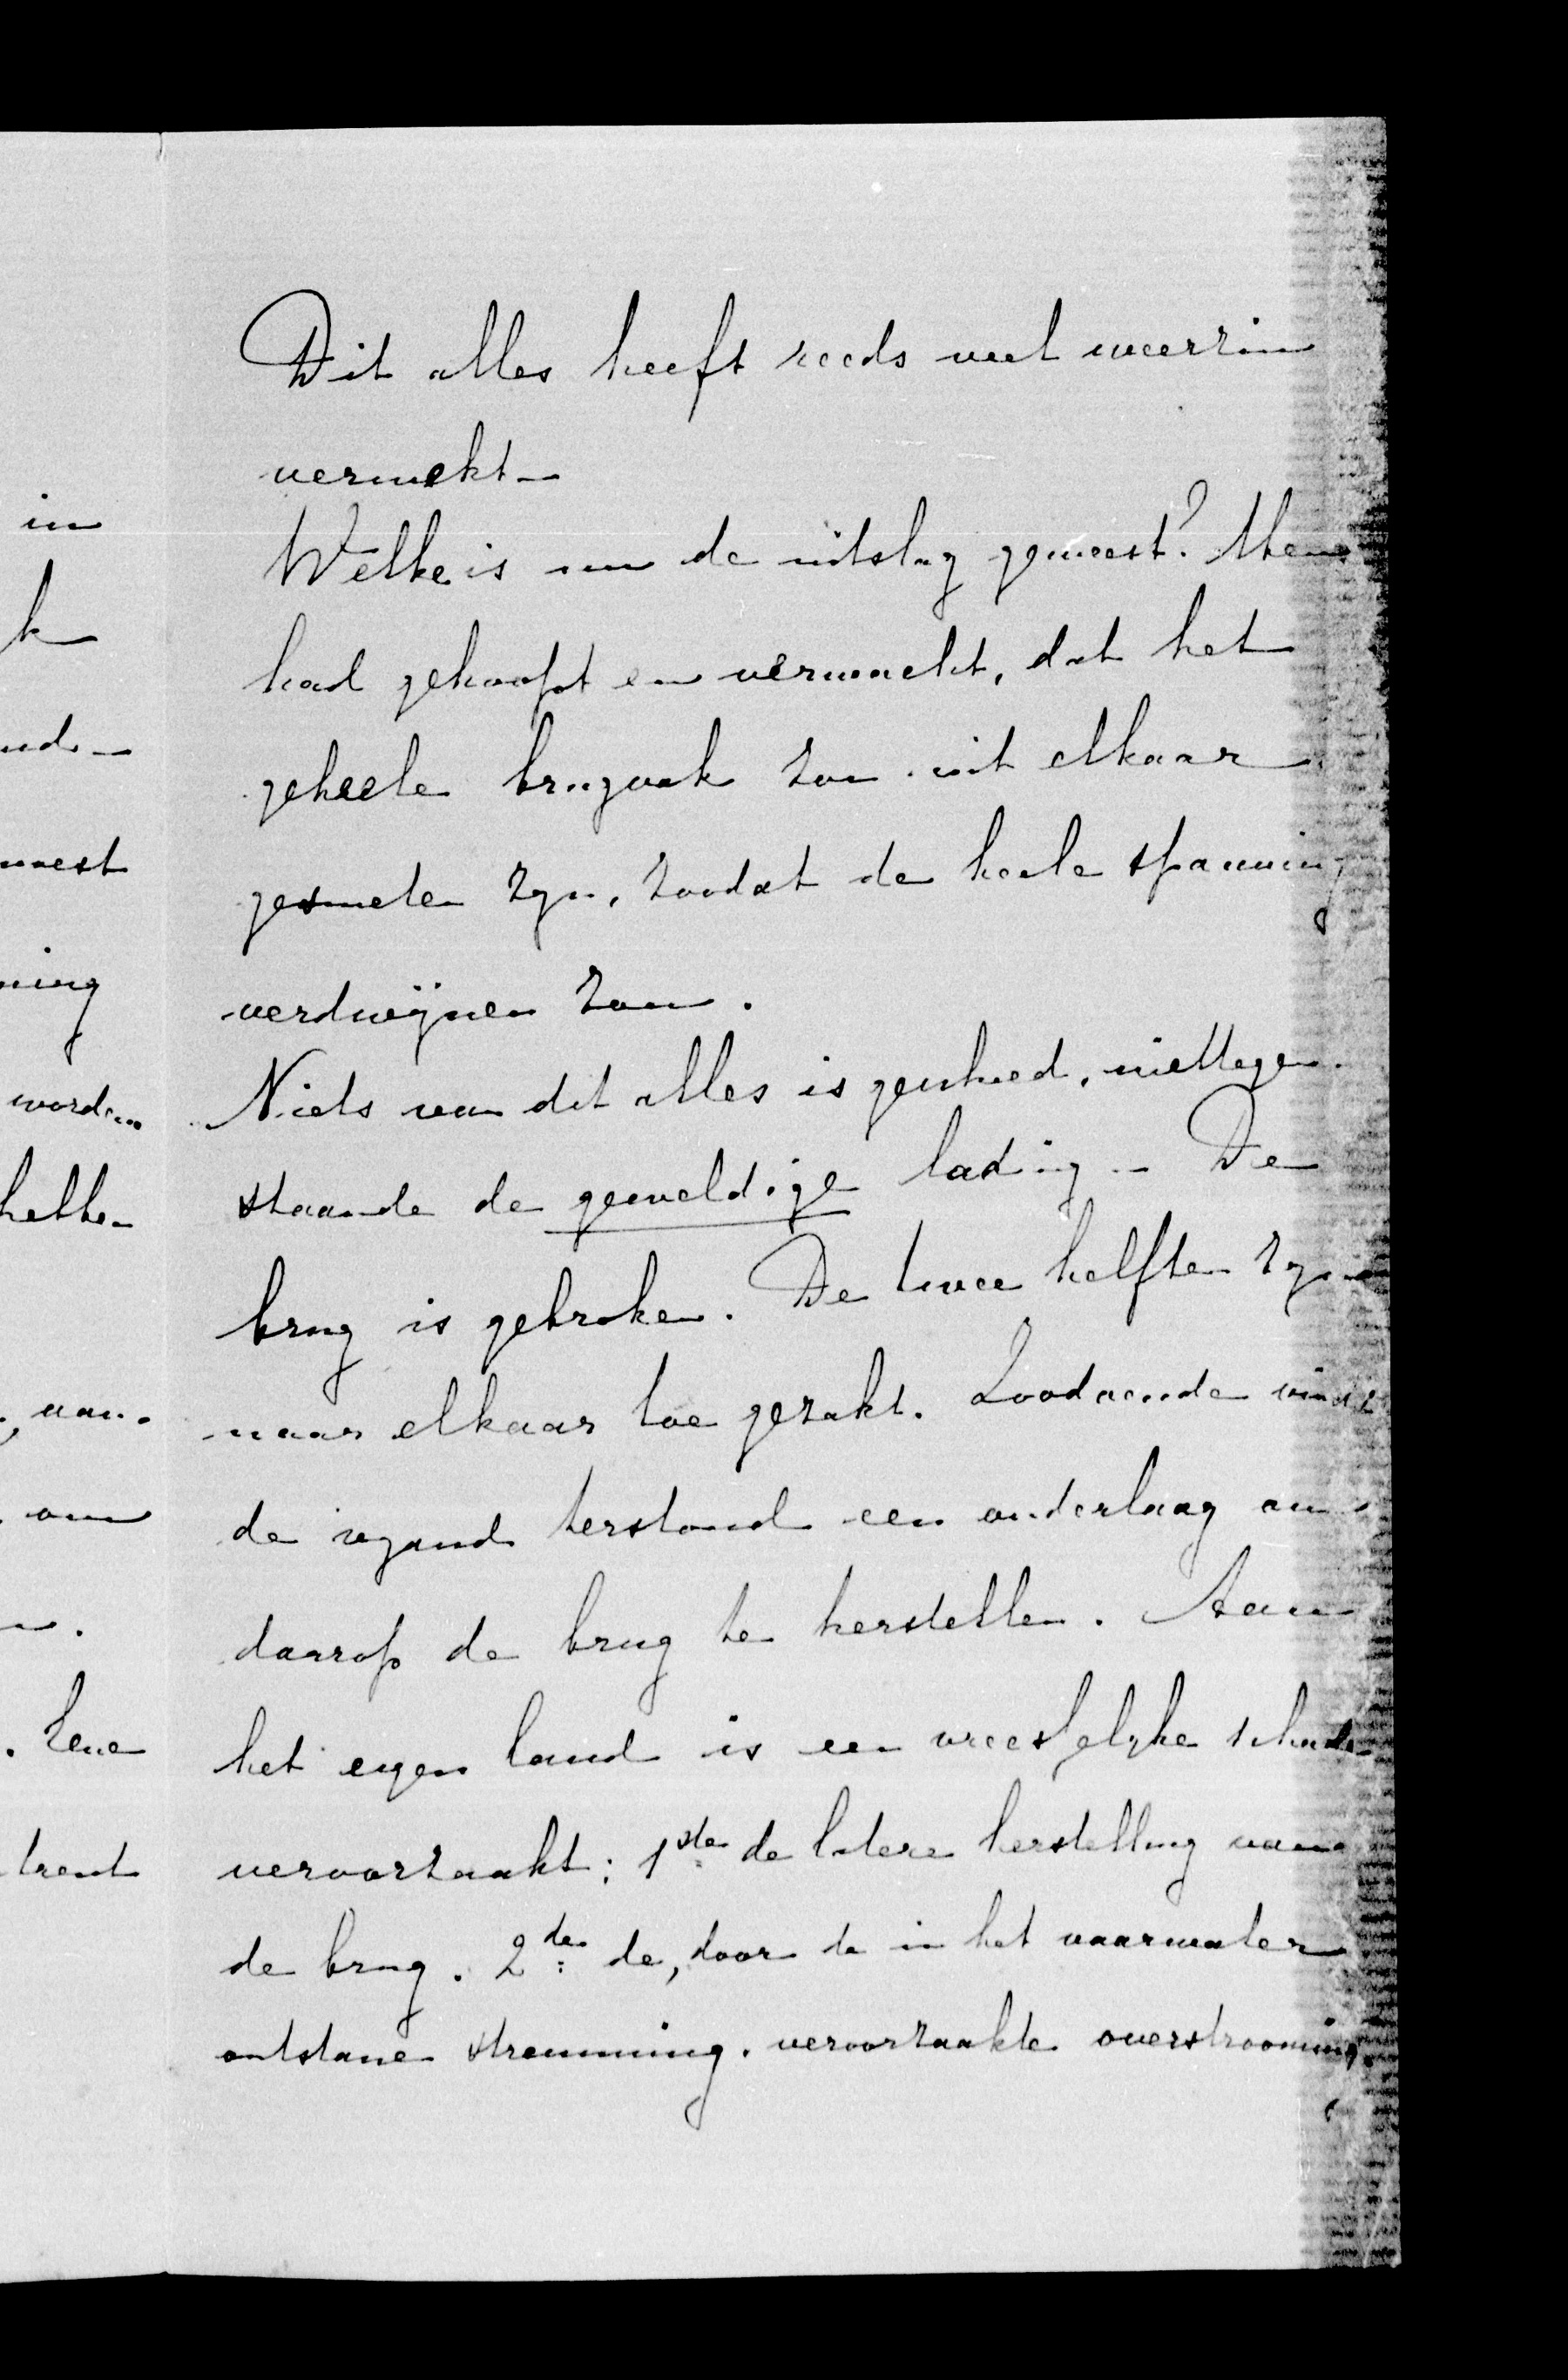 in
k
nd-
weest
ning
worden
hebben
van
om
n.
Eene
trent
Dit alles heeft reeds veel weerzin
verwekt -
Welke is nu de uitslag geweest? Men
had gehoopt en verwacht, dat het
geheele brugvak zou uit elkaar
gesmeten zyn, zoodat de heele spanning
verdwijnen zou.
Niets van dit alles is geschied, niettegen-
staande de geweldige lading - De
brug is gebroken. De twee helften zyn
naar elkaar toe gezakt. Zoodoende vindt
de vyand terstond een onderlaag om
daarop de brug te herstellen. Aan
het eigen land is een vreeselyke schade
veroorzaakt: 1ste de latere herstelling van
de brug. 2de de, door de in het vaarwater
ontstane stremming, veroorzaakte overstrooming